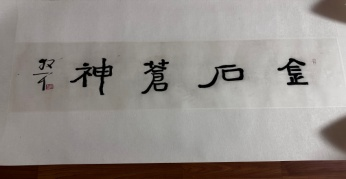 金石蒼神